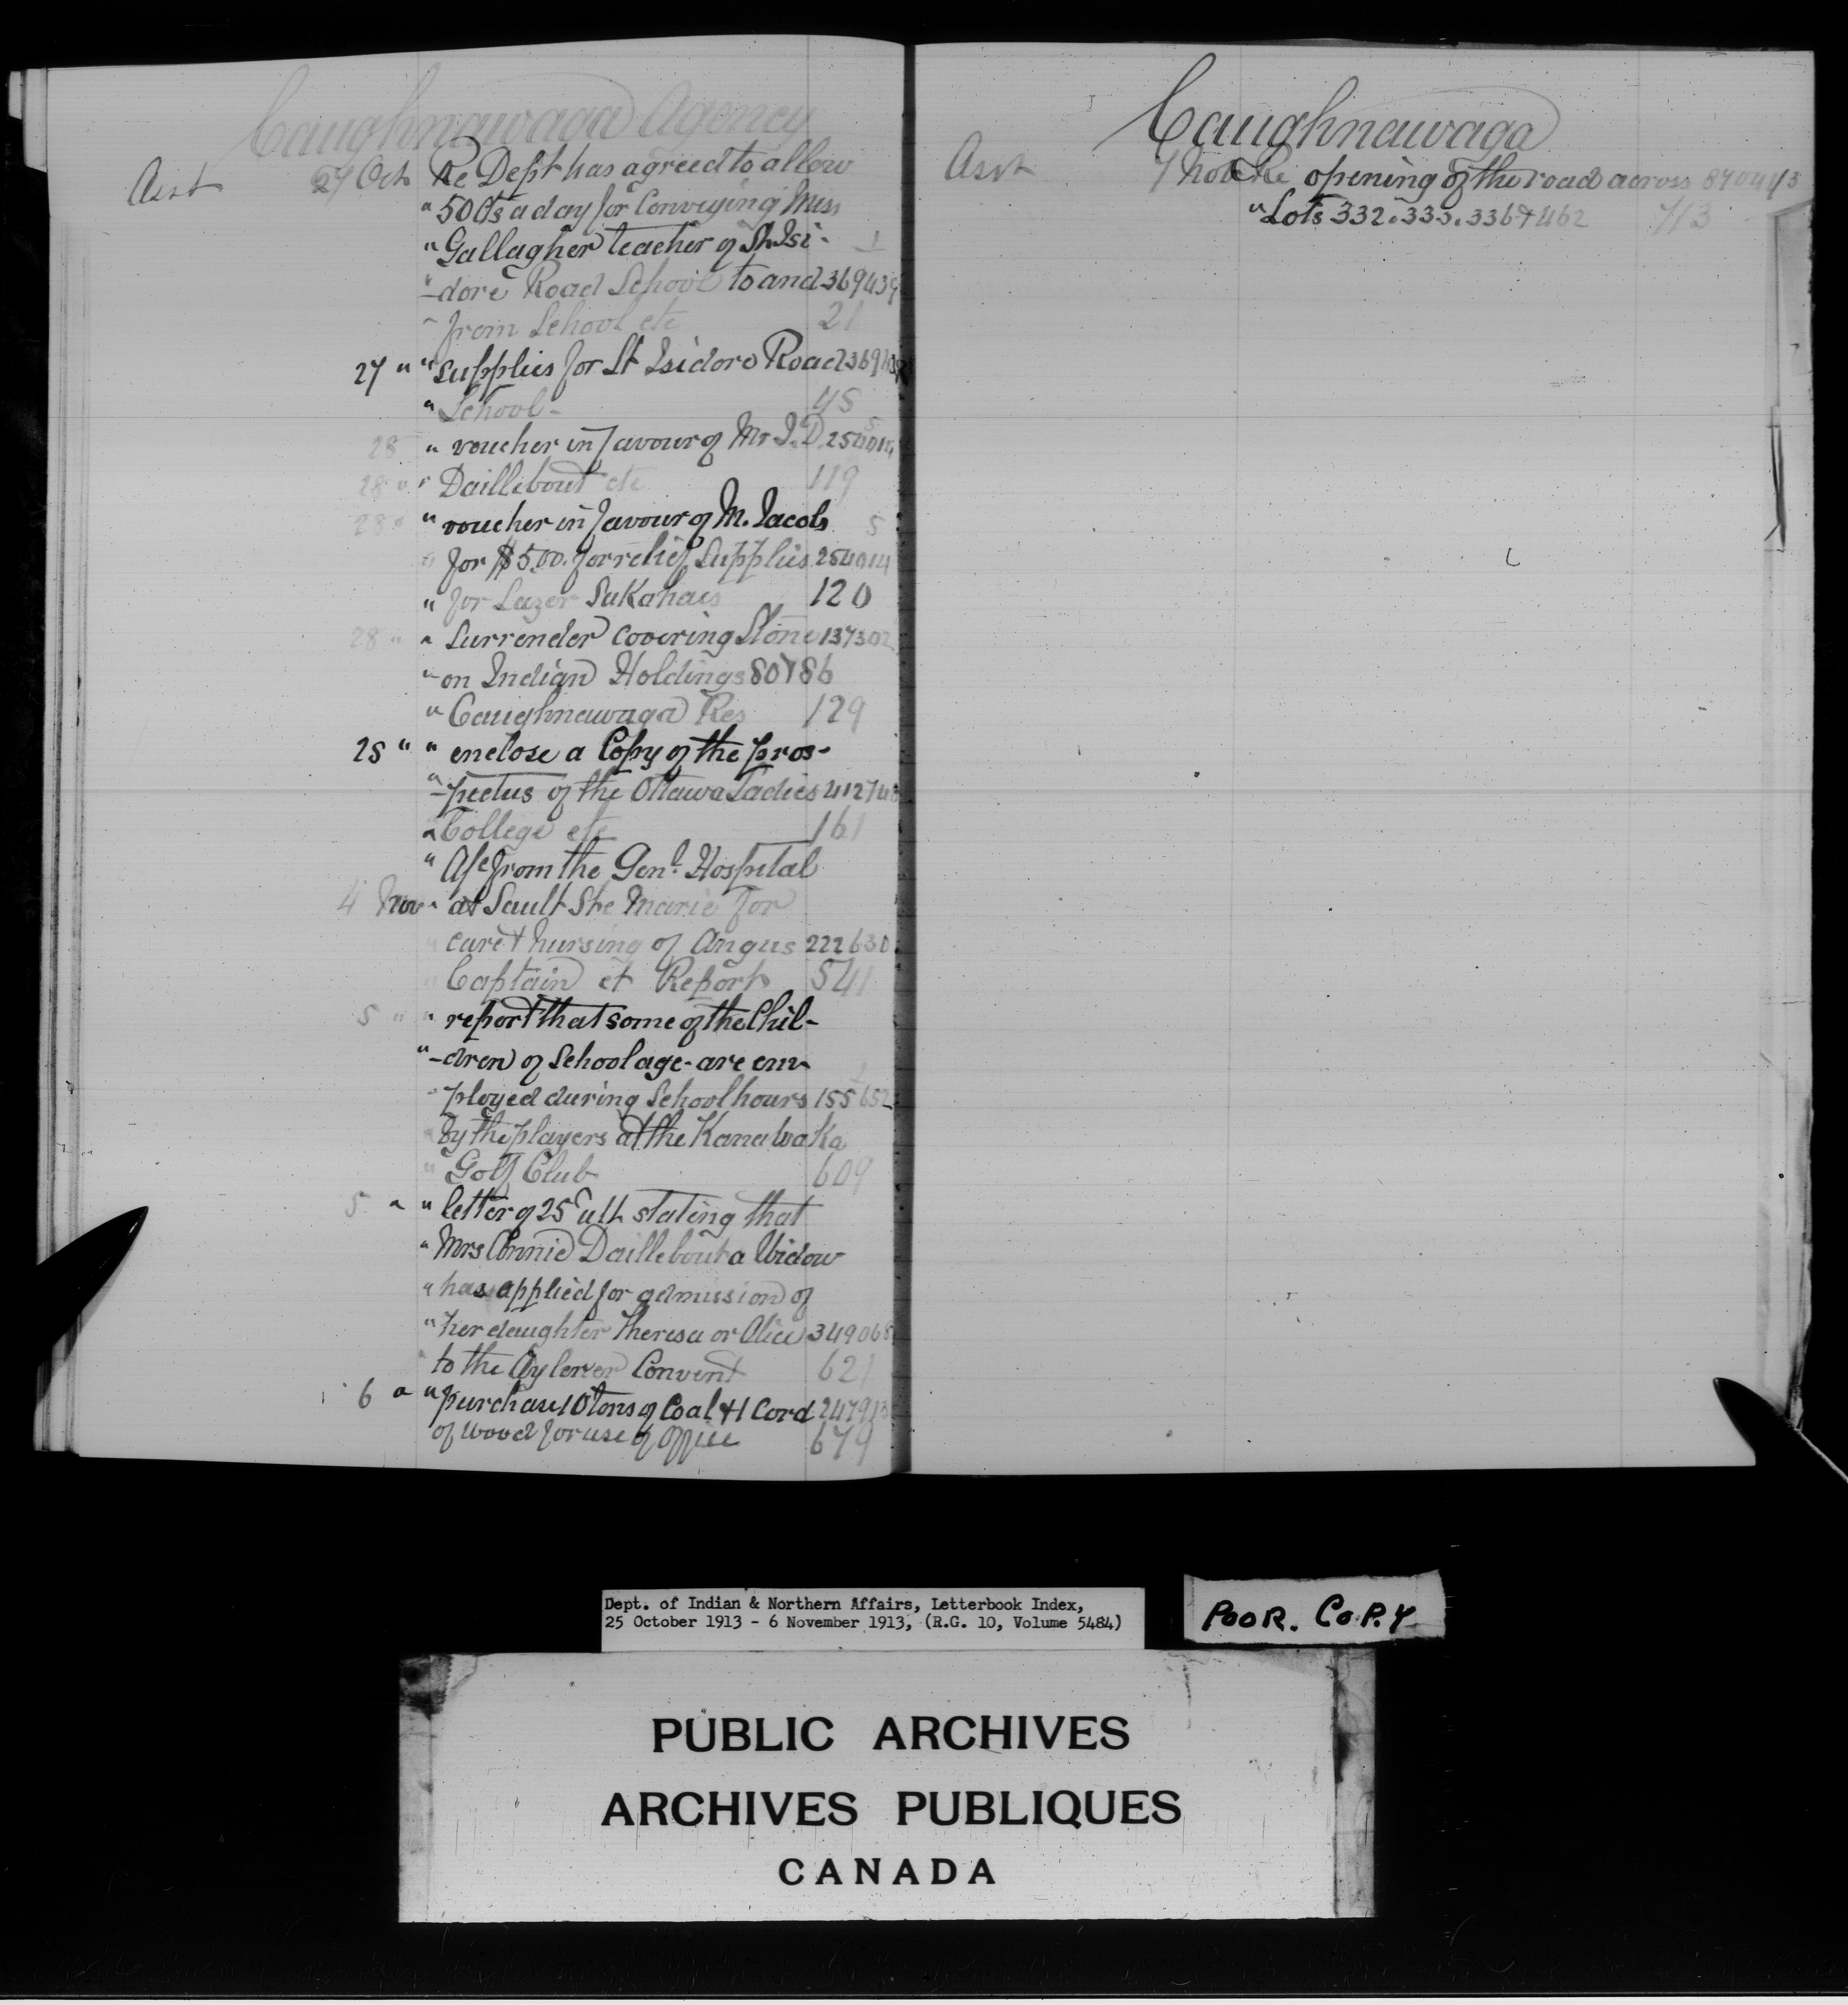 Caughnawaga Agency
Asst 27 Oct Re Dept has agreed to allow
" 50 cts a day for Conveying Miss
" Gallagher teacher of St. Isi- 1
" -dore Road School to and 369439
" from School etc 21
27 " " Supplies for St Isidore Road 36943
" School- 45
28 " voucher in favour of Mr J. D. 254014 5
28 " " Daillebout etc 119
28 " " voucher in favour of M. Jacobs 5
" for $5.00. for relief Supplies 254014
" for Lazer SaKahais 120
28 " " Surrender covering Stone 137302
" on Indian Holdings 80786
" Caughnawaga Res 129
25 " " enclose a Copy of the pros-
" -pectus of the Ottawa Ladies 412748
" College etc 161
" A/c from the Genl. Hospital
4 Nov " at Sault Ste Marie for
" care & nursing of Angus 222630
" Captain et Report 541
5 " " report that some of the Chil-
" -dren of School age - are em-
" ployed during School hours 155652
" by the players at the KanawaKa
" Golf Club 609
5 " " letter of 25 ult stating that
" Mrs Annie Daillebout a Widow
" has applied for admission of
" her daughter Theresa or Alice 349068
" to the Aylmer Convent 621
6 " " purchase 10 tons of Coal & 1 Cord 247913
of wood for use of Office 679
Caughnawaga
Asst 7 Nov Re opening of the road across 870443
" Lots 332.333.336 & 462 713
Dept. of Indian & Northern Affairs, Letterbook Index,
25 October 1913 - 6 November 1913, (R.G. 10, Volume 5484)
POOR. COPY
PUBLIC ARCHIVES
ARCHIVES PUBLIQUES
CANADA